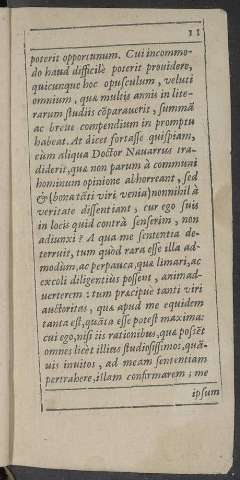 11
poterit opportunum. Cui incommo-
do haud difficilè poterit prouidere,
quicunque hoc opusculum, veluti
omnium, quæ multis annis in lite-
rarum studiis cōparauerit, summā
ac breue compendium in promptu
habeat. At dicet fortasse quispiam,
cùm aliqua Doctor Nauarrus tra-
diderit, quæ non parum à communi
hominum opinione abhorreant, sed
&(bona tāti viri venia)nonnihil à
veritate dissentiant, cur ego suis
in locis quid contrà senserim, non
adiunxi? A qua me sententia de-
terruit, tum quòd rara esse illa ad-
modùm, ac perpauca, quæ limari, ac
excoli diligentiùs possent, animad-
uerterem: tum præcipuè tanti viri
auctoritas, quæ apud me equidem
tanta est, quāta esse potest maxima:
cui ego, nisi iis rationibus, quæ possēt
omnes licèt illius studiosissimos, quā-
uis inuitos, ad meam sententiam
pertrahere, illam confirmarem; me
ipsum